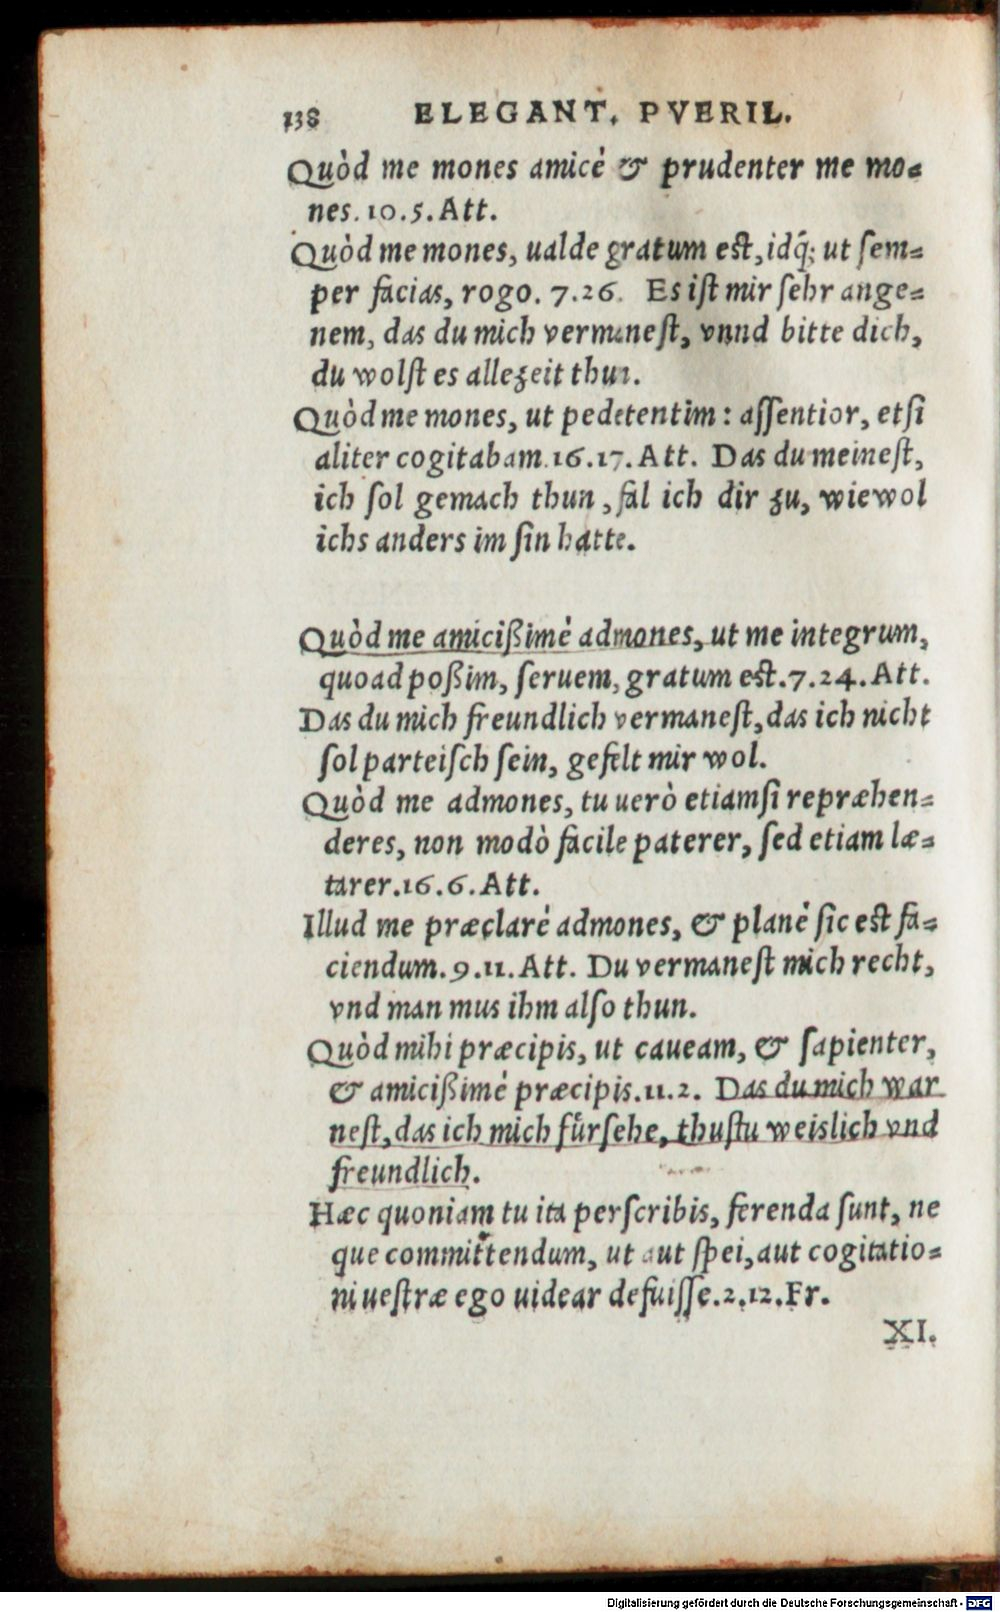 138 ELEGANT. PVERIL.
Quòd me mones amicè & prudenter me mo=
nes. 10.5. Att.
Quòd me mones, ualde gratum est, idq́; ut ſem=
per facias, rogo. 7.26. Es iſt mir ſehr ange=
nem, das du mich vermaneſt, vnnd bitte dich,
du wolſt es allezeit thun.
Quòd me mones, ut pedetentim: aſſentior, etſi
aliter cogitabam. 16.17. Att. Das du meineſt,
ich ſol gemach thun, fal ich dir zu, wiewol
ichs anders im ſin hatte.
Quòd me amicißimè admones, ut me integrum,
quoad poßim, ſeruem, gratum est. 7.24. Att.
Das du mich freundlich vermaneſt, das ich nicht
ſol parteiſch ſein, gefelt mir wol.
Quòd me admones, tu uerò etiamſi repræhen=
deres, non modò facile paterer, ſed etiam læ=
tarer. 16.6. Att.
Illud me præclarè admones, & planè ſic est fa=
ciendum. 9.11. Att. Du vermaneſt mich recht,
vnd man mus ihm alſo thun.
Quòd mihi præcipis, ut caueam, & ſapienter,
& amicißimè præcipis. 11.2. Das du mich war
neſt, das ich mich fürſehe, thuſtu weislich vnd
freundlich.
Hæc quoniam tu ita perſcribis, ferenda ſunt, ne
que committendum, ut aut ſpei, aut cogitatio=
ni ueſtræ ego uidear defuiſſe. 2.12. Fr.
XI.
Digitalisierung gefördert durch die Deutsche Forschungsgemeinschaft - DFG